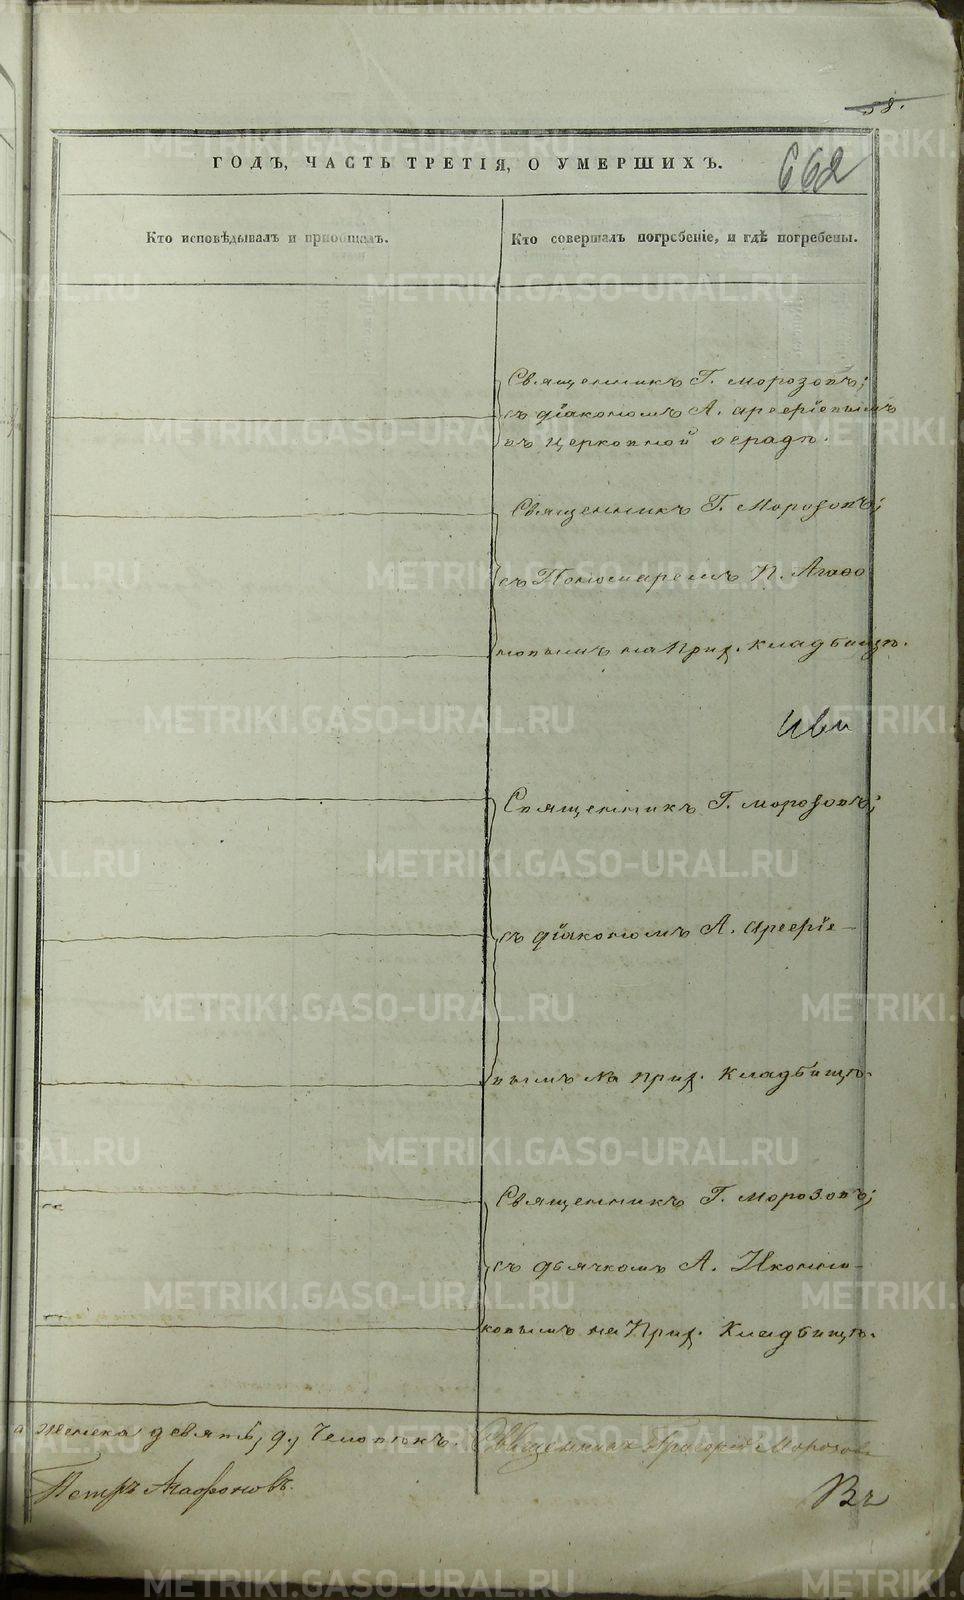 58.
ГОДЪ, ЧАСТЬ ТРЕТІЯ, О УМЕРШИХЪ.
662
Кто исповѣдывалъ и пріобщалъ.
Кто совершалъ погребеніе, и гдѣ погребены.
Священникъ Г. Морозовъ;
съ діакономъ А. Арефіевымъ
въ церковной оградѣ.
Священникъ Г. Морозовъ;
съ Пономаремъ П. Агафо
новымъ на Прид. кладбищѣ.
Священникъ Г. Морозовъ;
съ діакономъ А. Арефіе-
вымъ на прид. Кладбищѣ.
Священникъ Г. Морозовъ;
съ дьячкомъ А. Иконни-
ковымъ на Прид. Кладбищѣ.
а женска девять, 9, Человѣкъ.
Священникъ Григорій Морозовъ
Петръ Агафоновъ.
METRIKI.GASO-URAL.RU